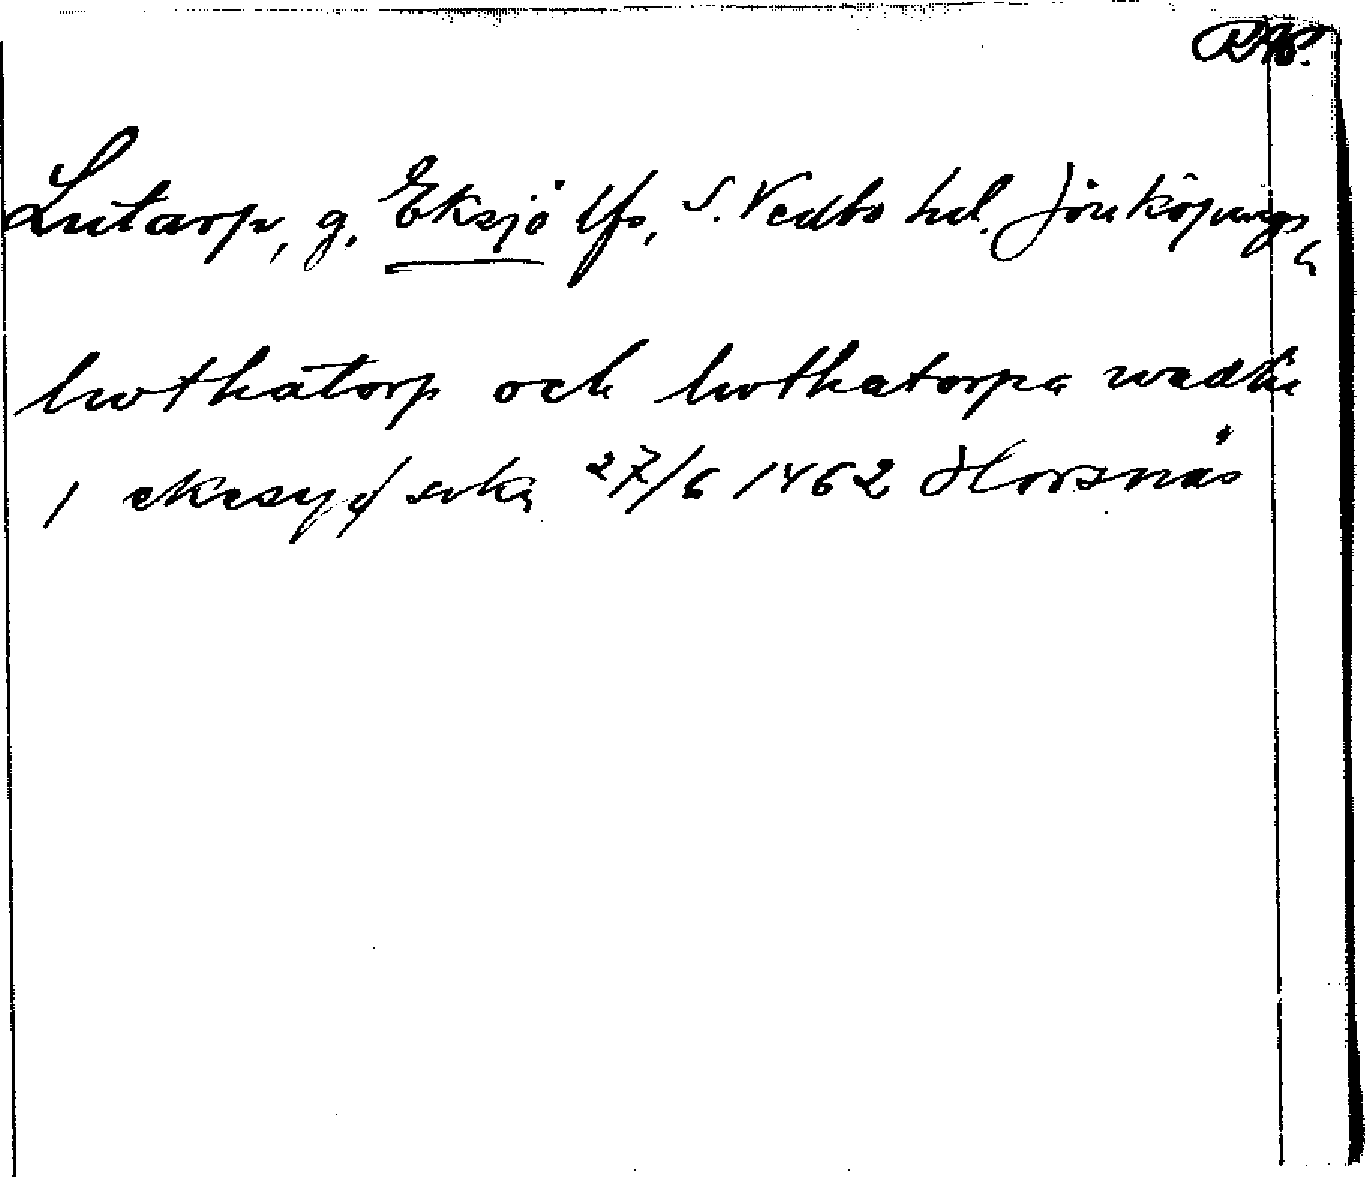 Lutarp, g. Eksjö lfs, S. Vedbo hd. Jönköpings
lwthatorp och lwthatorpa wadhe
i ekesyø sokn 27/6 1462 Horsnäs